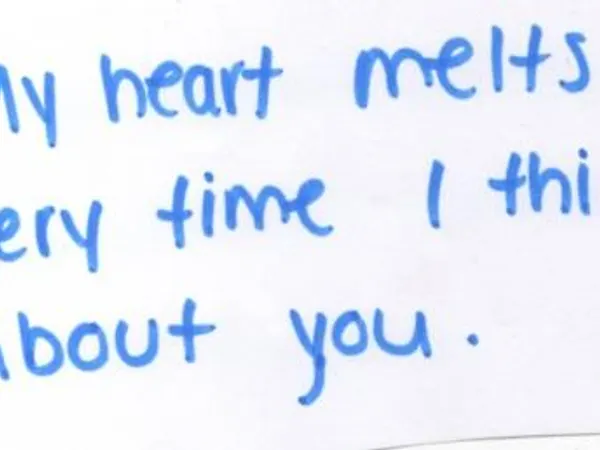 My heart melts
ery time I thi
about you.